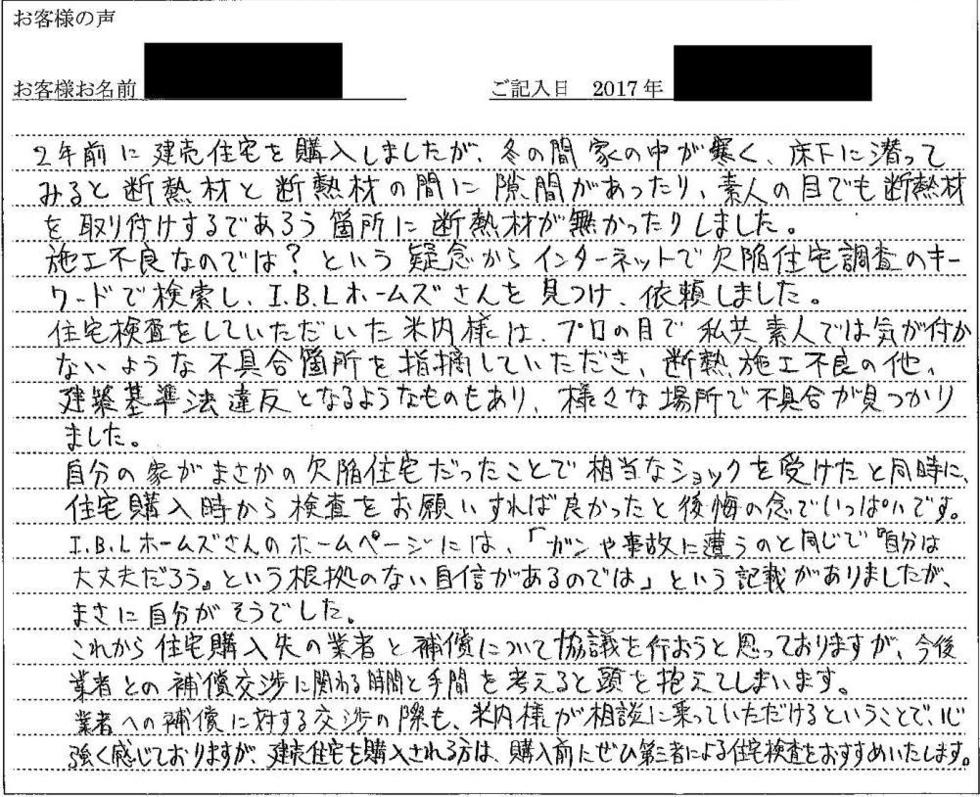 お客様の声
お客様お名前
ご記入日 2017年
2年前に建売住宅を購入しましたが、冬の間家の中が寒く、床下に潜って
みると断熱材と断熱材の間に隙間があったり、素人の目でも断熱材
を取り付けするであろう箇所に断熱材が無かったりしました。
施工不良なのでは？という疑念からインターネットで欠陥住宅調査のキー
ワードで検索し、I.B.Lホームズさんを見つけ、依頼しました。
住宅検査をしていただいた米内様は、プロの目で私共素人では気が付か
ないような不具合箇所を指摘していただき、断熱施工不良の他、
建築基準法違反となるようなものもあり、様々な場所で不具合が見つかり
ました。
自分の家がまさかの欠陥住宅だったことで相当なショックを受けたと同時に、
住宅購入時から検査をお願いすれば良かったと後悔の念でいっぱいです。
I.B.Lホームズさんのホームページには、「ガンや事故に遭うのと同じで『自分は
大丈夫だろう』という根拠のない自信があるのでは」という記載がありましたが、
まさに自分がそうでした。
これから住宅購入先の業者と補償について協議を行おうと思っておりますが、今後
業者との補償交渉に関わる時間と手間を考えると頭を抱えてしまいます。
業者への補償に対する交渉の際も、米内様が相談に乗っていただけるということで、心
強く感じておりますが、建売住宅を購入される方は、購入前にぜひ第三者による住宅検査をおすすめいたします。